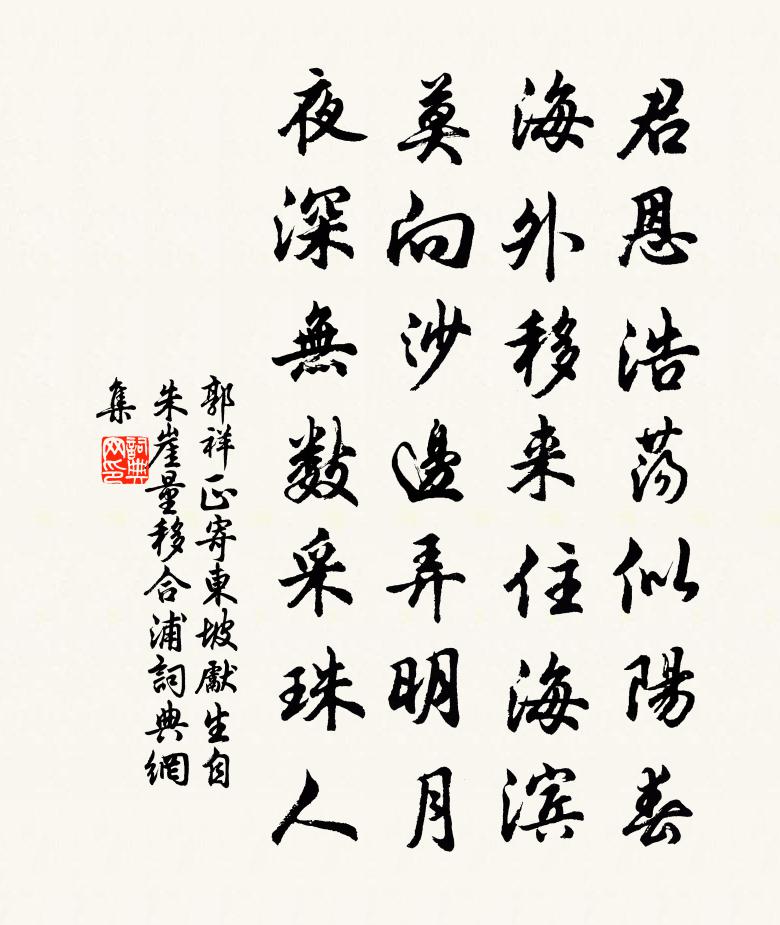 君恩浩荡似陽春
海外移来住海滨
莫向沙邊弄明月
夜深無数采珠人
郭祥正寄東坡獻生自
朱崖量移合浦詞典網
集
詞典網印